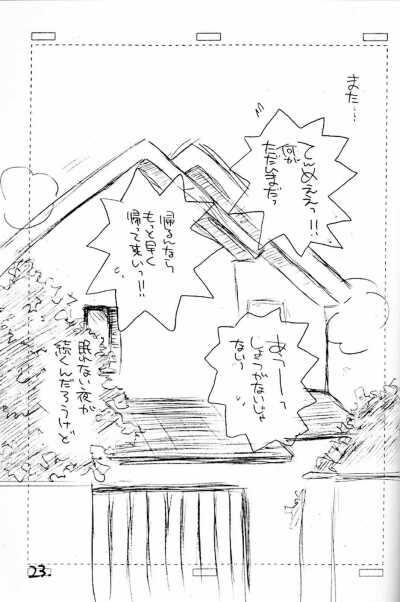 また…
てんめえぇっ!!
何が
ただいまだっ
帰るんなら
もっと早く
帰って来いっ!!
あうーっ
しょうがないじゃ
ないっ
眠れない夜が
続くんだろうけど
23.